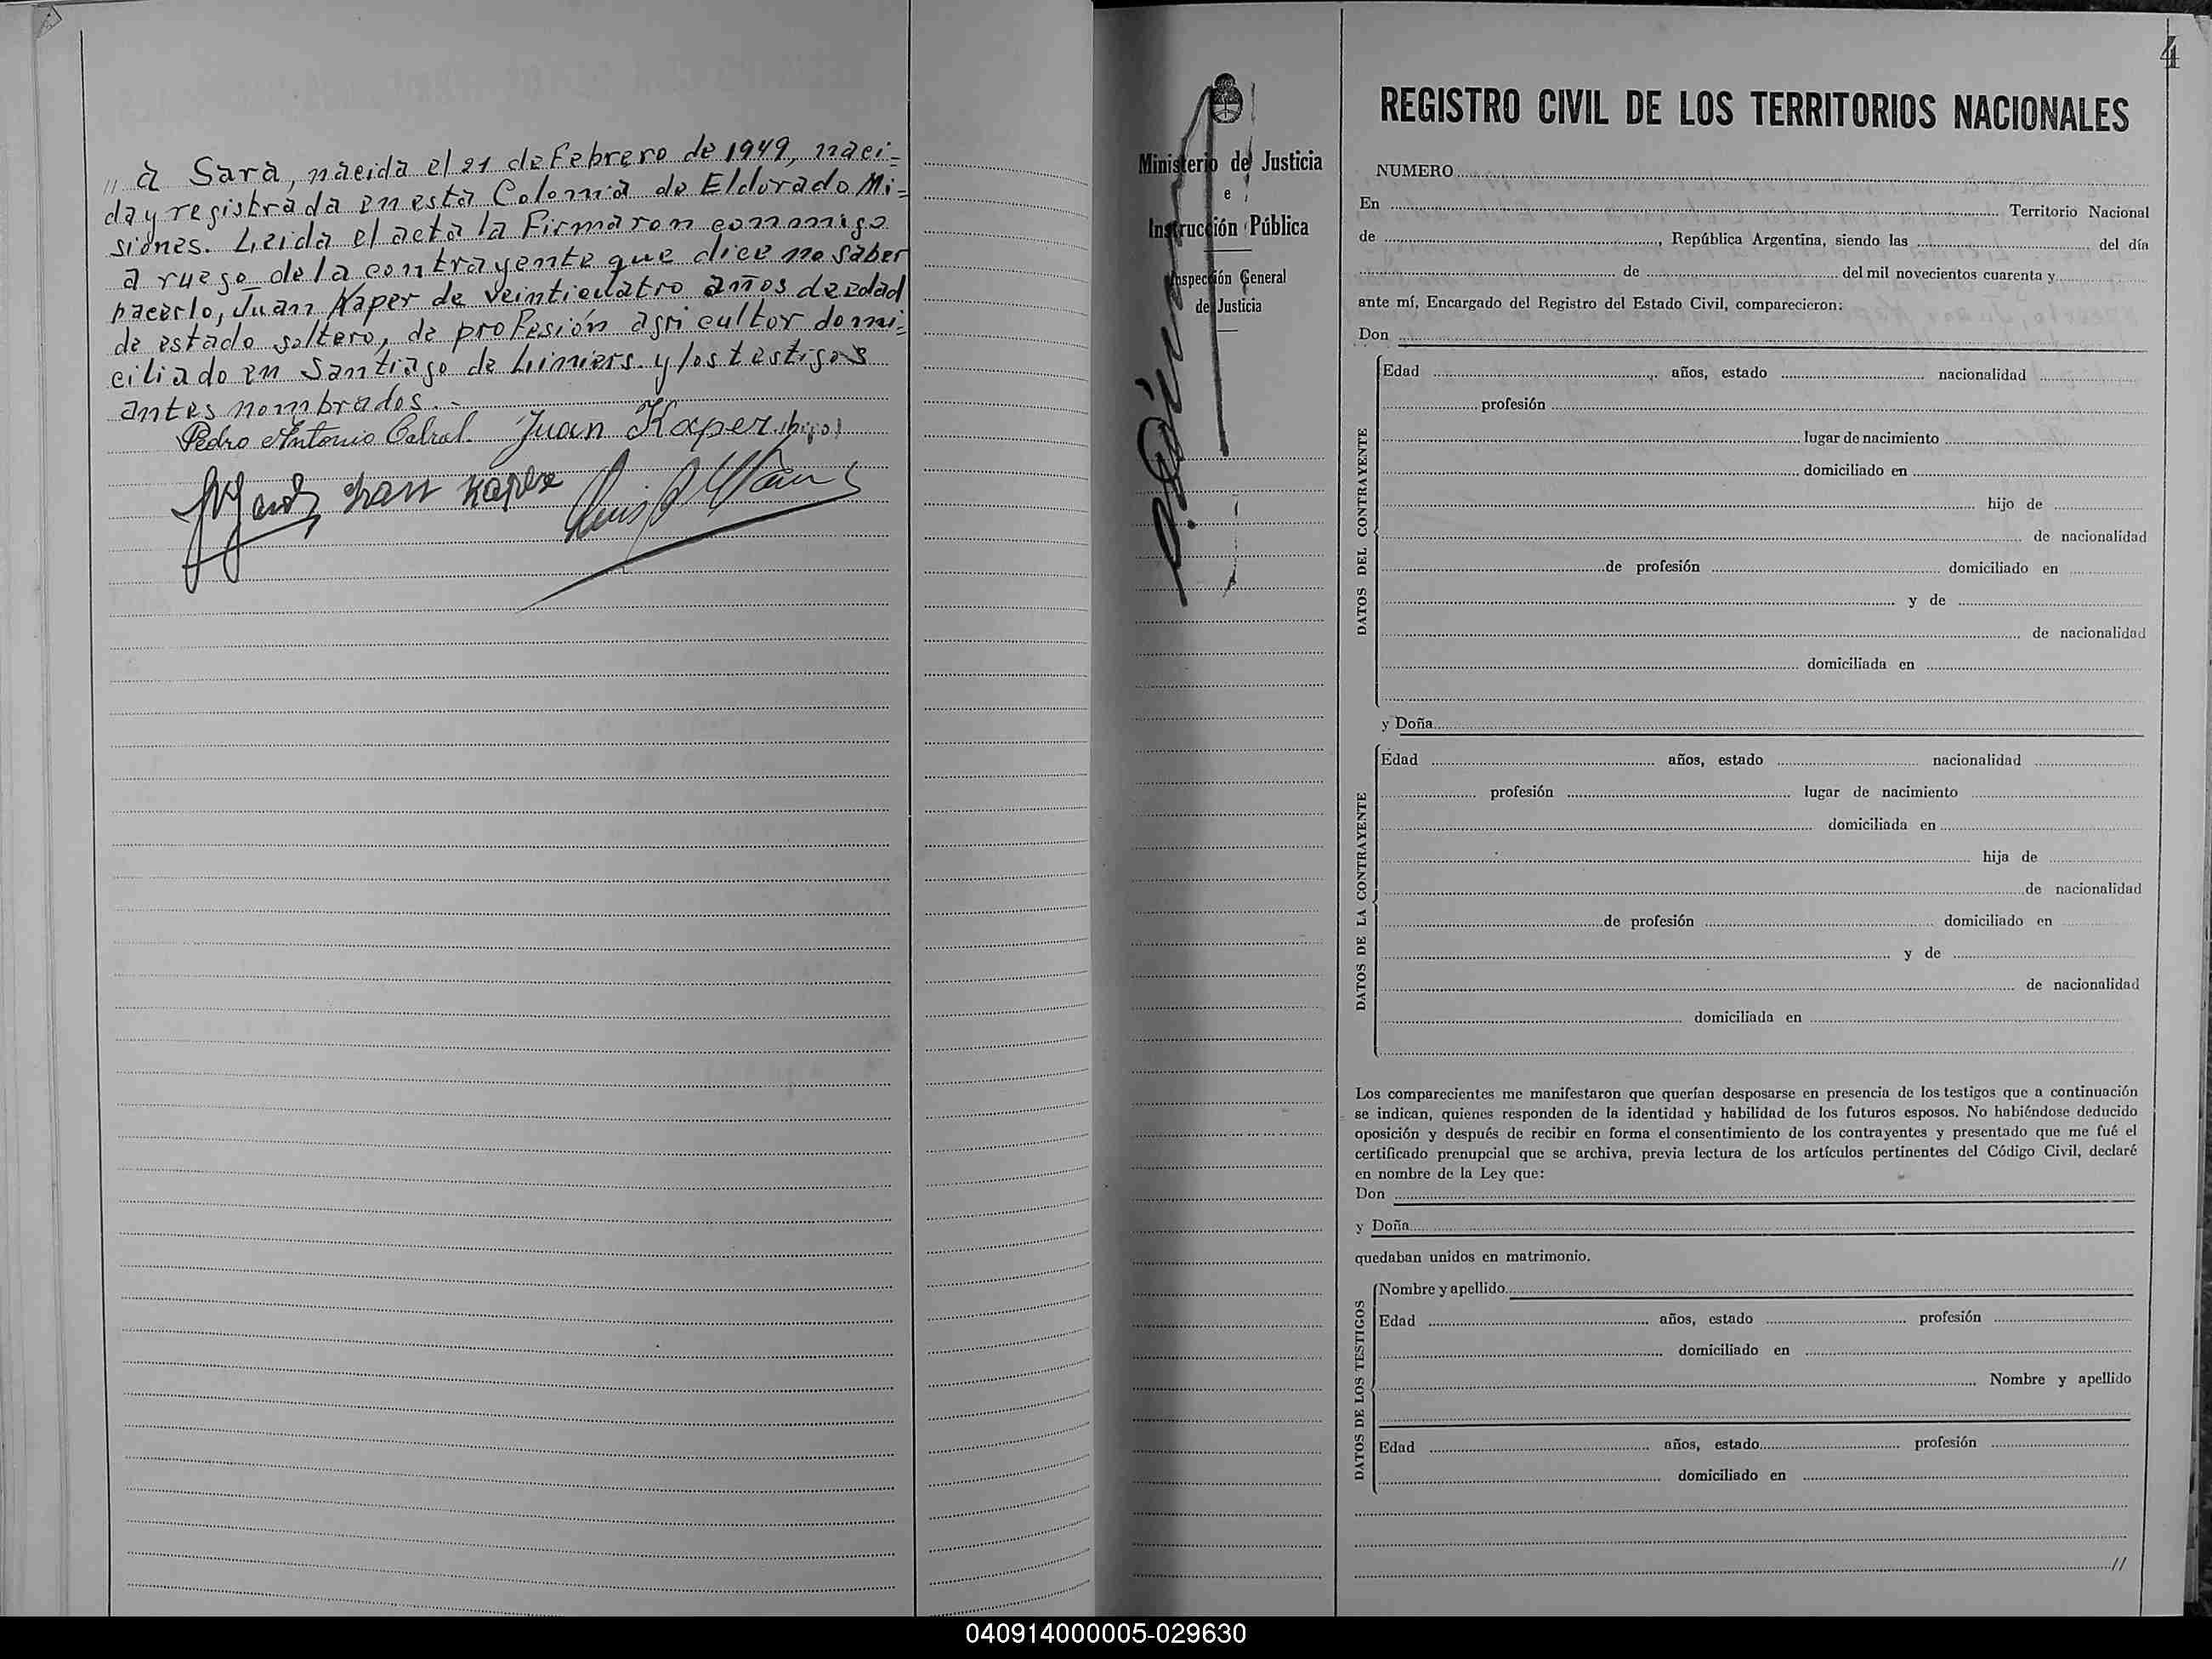 " a Sara, nacida el 21 de Febrero de 1949, naci=
da y registrada en esta Colonia de Eldorado Mi=
siones. Leida el acta la Firmaron conmigo
a ruego de la contrayente que dice no saber
hacerlo, Juan Kaper de veinticuatro años de edad
de estado soltero, de profesión agricultor domi=
ciliado en Santiago de Liniers. y los testigos
antes nombrados.-
Pedro Antonio Cabral. Juan Kaper (hijo)
Kaper Luis
4
Ministerio de Justicia
e
Instrucción Pública
Inspección General
de Justicia
REGISTRO CIVIL DE LOS TERRITORIOS NACIONALES
NUMERO
En Territorio Nacional
de , República Argentina, siendo las del día
de del mil novecientos cuarenta y
ante mí, Encargado del Registro del Estado Civil, comparecieron:
Don
DATOS DEL CONTRAYENTE
Edad años, estado nacionalidad
profesión
lugar de nacimiento
domiciliado en
hijo de
de nacionalidad
de profesión domiciliado en
y de
de nacionalidad
domiciliada en
y Doña
DATOS DE LA CONTRAYENTE
Edad años, estado nacionalidad
profesión lugar de nacimiento
domiciliada en
hija de
de nacionalidad
de profesión domiciliado en
y de
de nacionalidad
domiciliada en
Los comparecientes me manifestaron que querían desposarse en presencia de los testigos que a continuación
se indican, quienes responden de la identidad y habilidad de los futuros esposos. No habiéndose deducido
oposición y después de recibir en forma el consentimiento de los contrayentes y presentado que me fué el
certificado prenupcial que se archiva, previa lectura de los artículos pertinentes del Código Civil, declaré
en nombre de la Ley que:
Don
y Doña
quedaban unidos en matrimonio.
DATOS DE LOS TESTIGOS
Nombre y apellido
Edad años, estado profesión
domiciliado en
Nombre y apellido
Edad años, estado profesión
domiciliado en
//
040914000005-029630